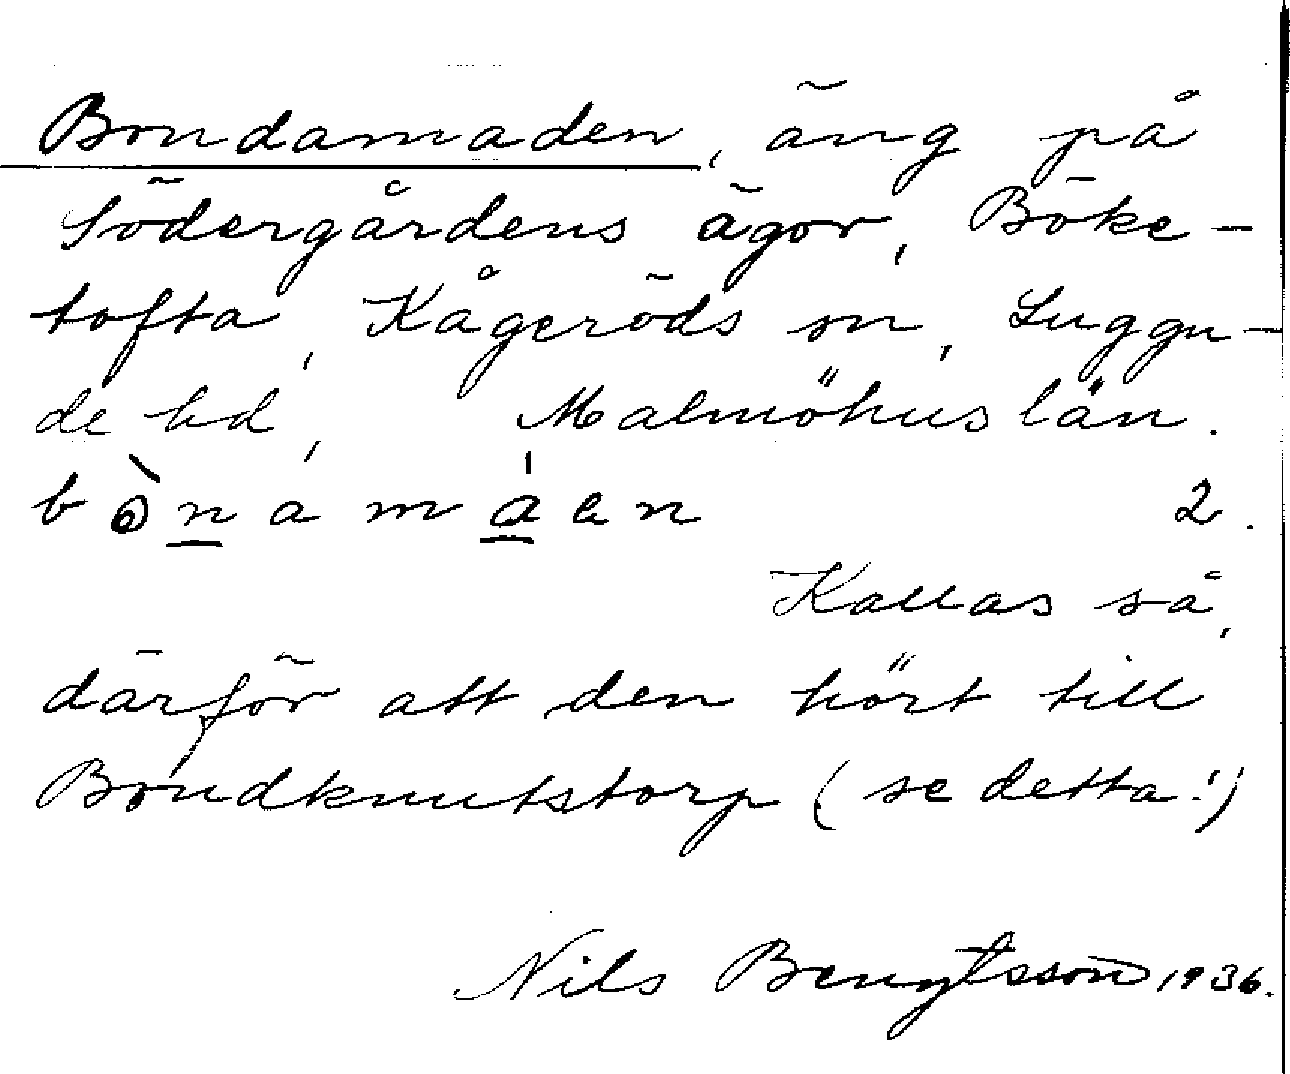 Bondamaden, äng på
Södergårdens ägor, Böke-
tofta, Kågeröds sn, Luggu-
de hd, Malmöhus län.
bònamáen 2.
Kallas så,
därför att den hört till
Bondknutstorp (se detta!)
Nils Bengtsson 1936.